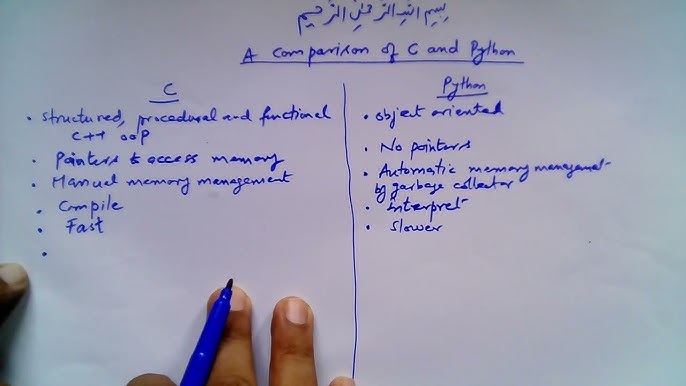 بسم الله الرحمن الرحيم
A Comparison of C and Python
C
• Structured, procedural and functional
C++ OOP
• Pointers to access memory
• Manual memory management
• Compile
• Fast
•
Python
• Object oriented
• No pointers
• Automatic memory management
by garbage collector
• interpret
• slower